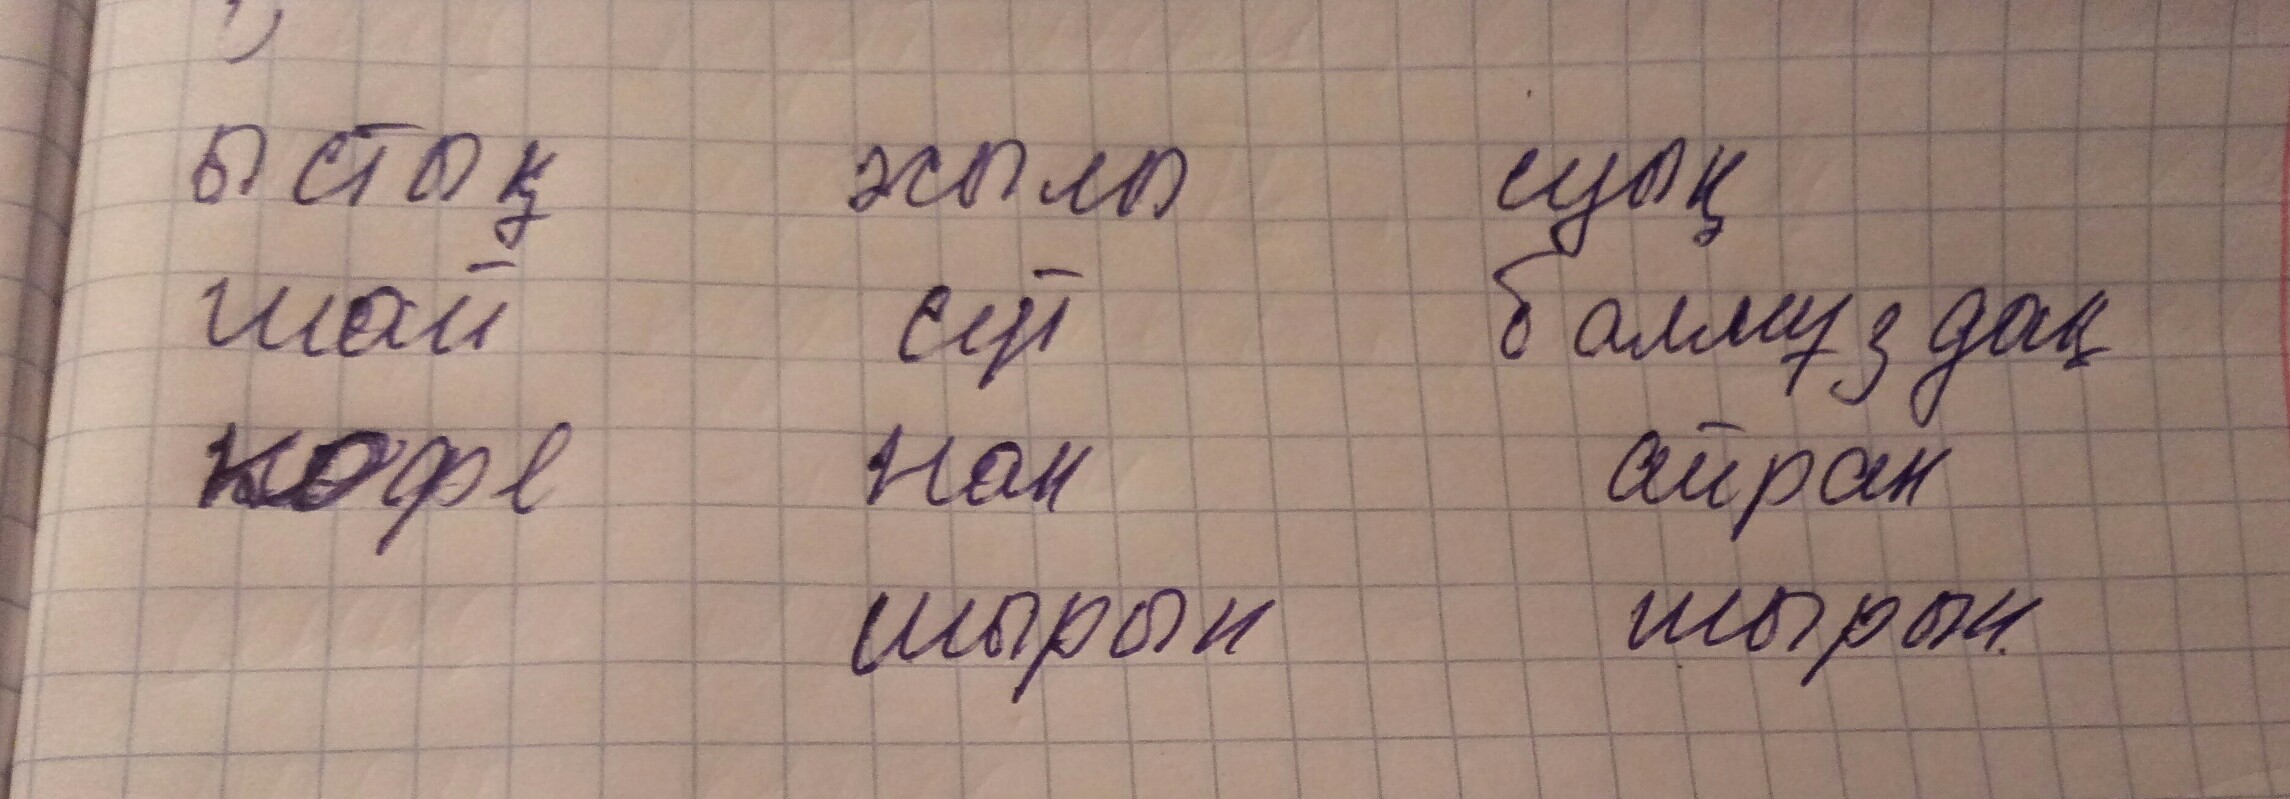 ыстық жылы суық
шай сүт балмұздақ
кофе нан айран
шырын шырын.